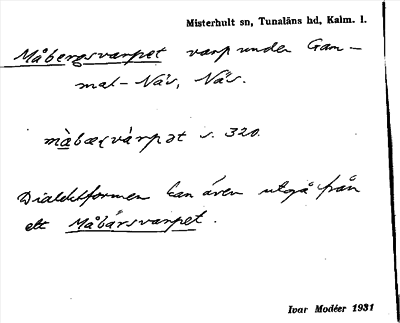 Misterhult sn, Tunaläns hd, Kalm. l.
Måbergsvarpet varp under Gam-
mal-Näs, Näs.
màbæɽvàrpət s. 320.
Dialektformen kan även utgå från
ett Måbärsvarpet.
Ivar Modéer 1931